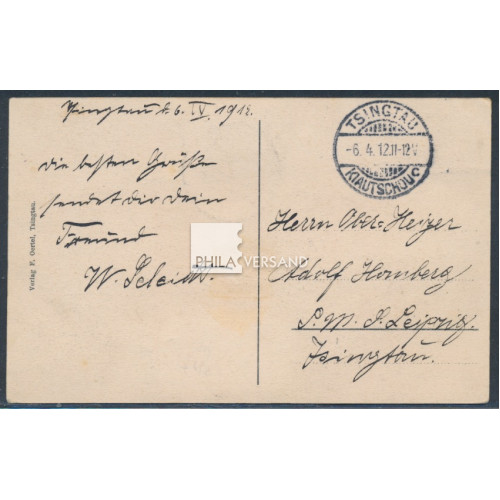 Tsingtau d. 6. IV. 1912.
die besten Grüße
sendet dir dein
Freund
W.
Verlag F. Oertel, Tsingtau.
PHILA VERSAND
TSINGTAU
-6.4.12.11-12V
KIAUTSCHOU
Herrn Ober-Heizer
Adolf Homberg
S. M. S. Leipzig.
Tsingtau.